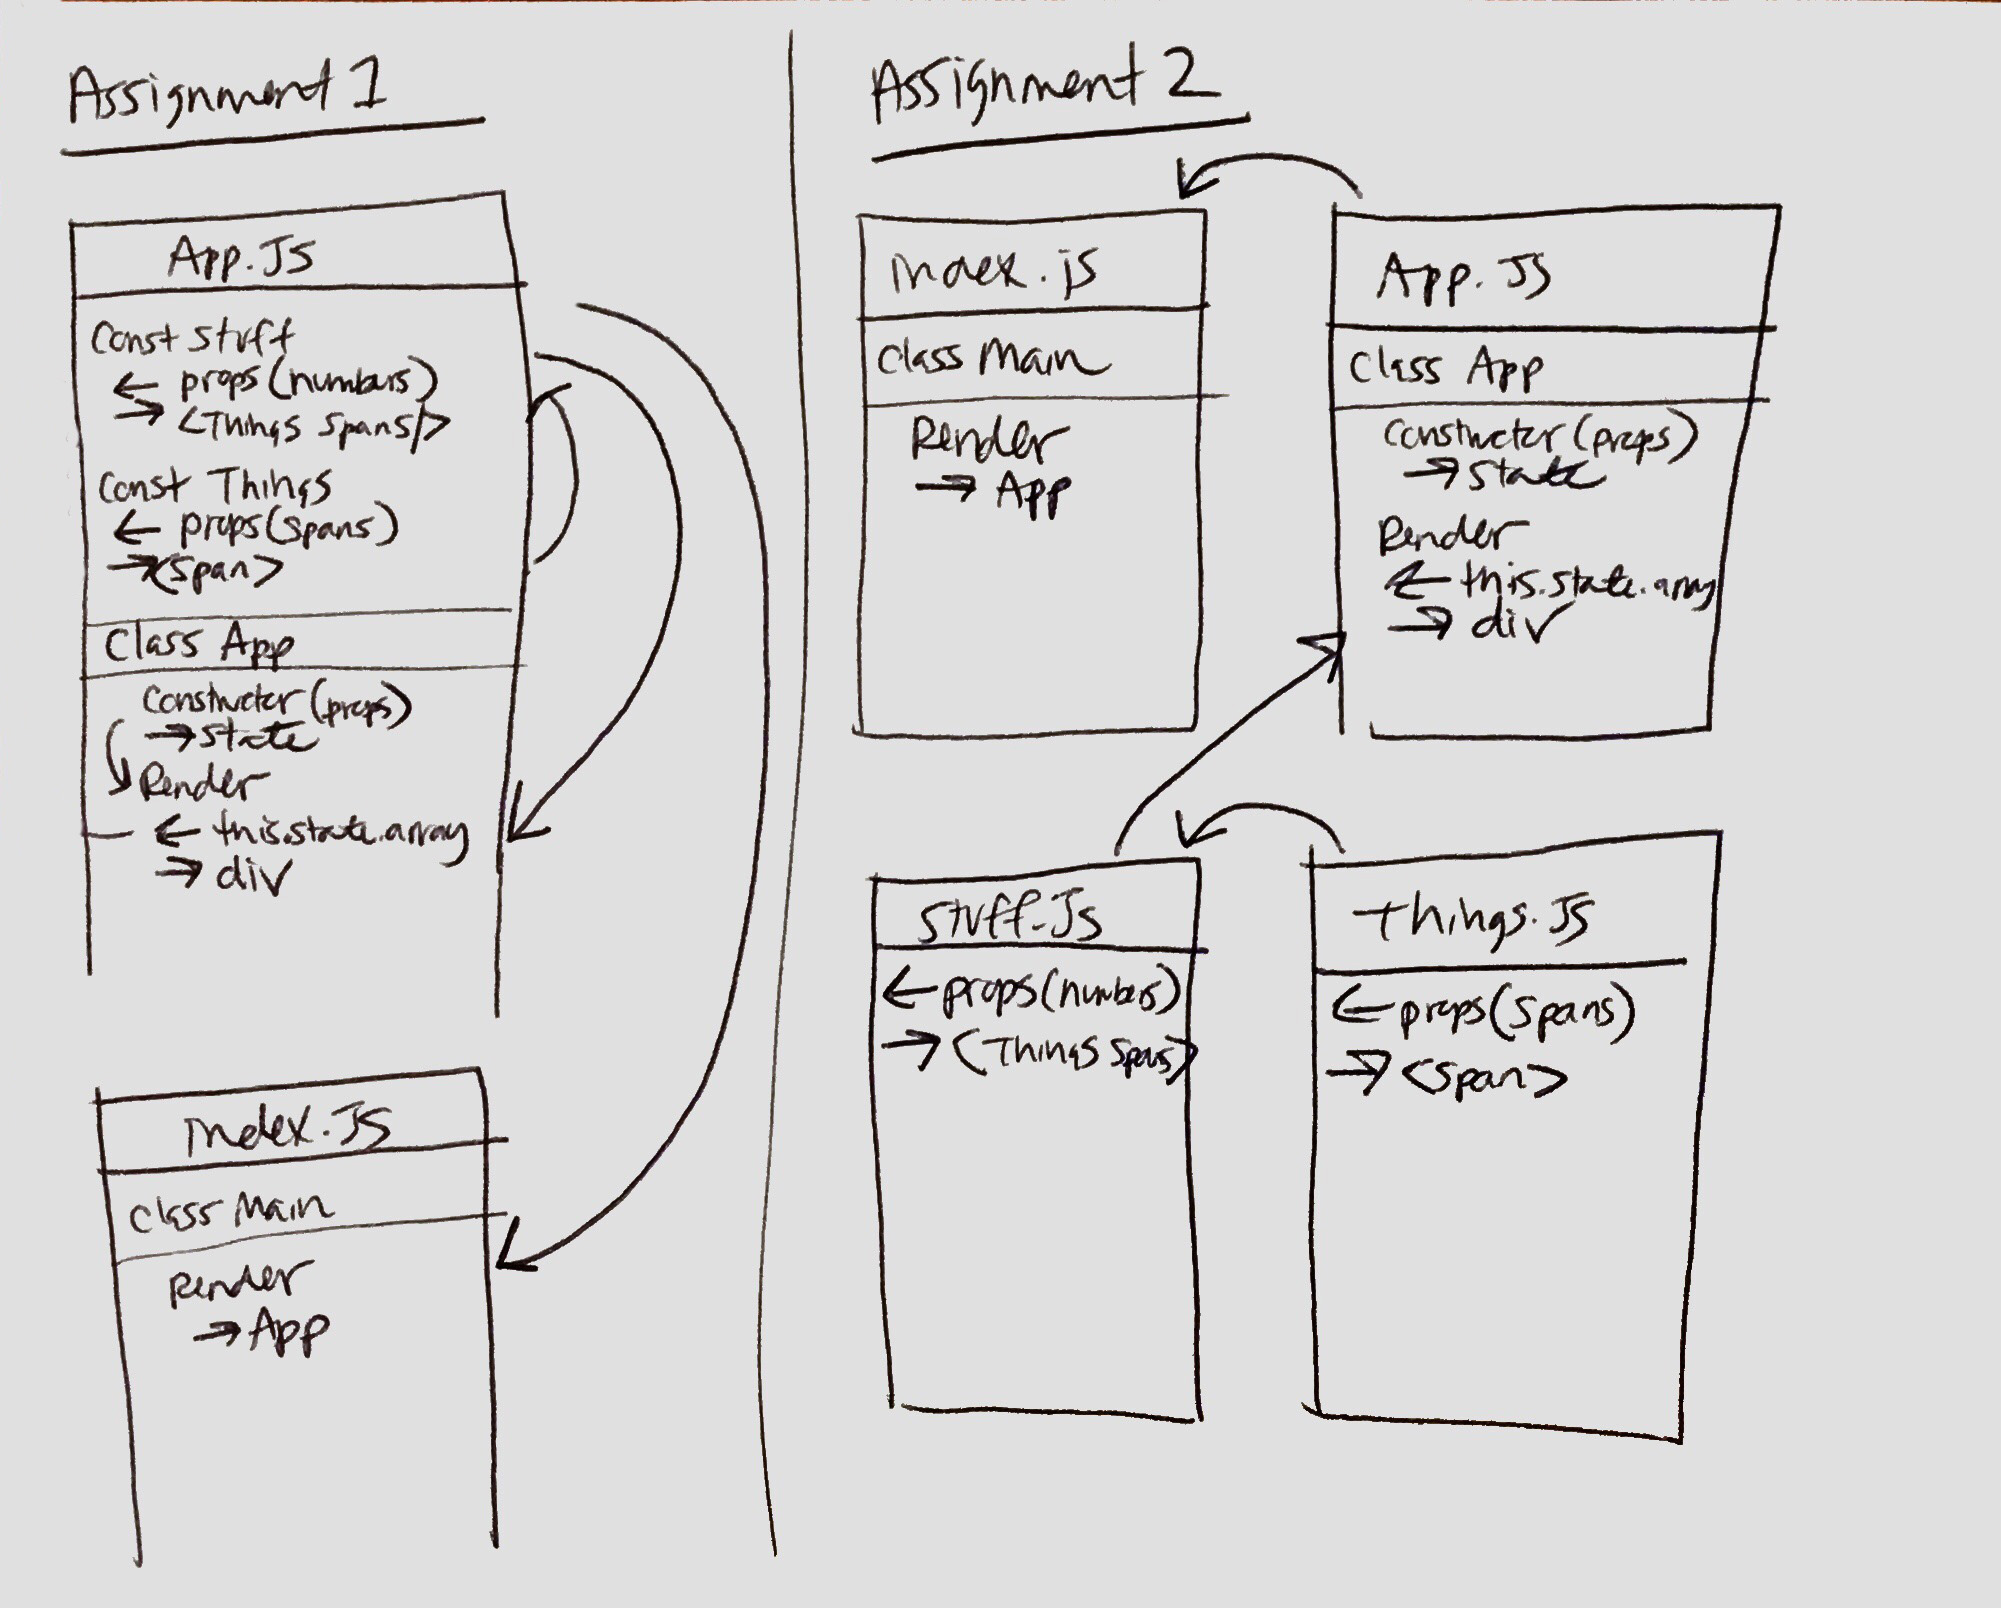 Assignment 1
App.JS
Const Stuff
← props(numbers)
→ <Things spans/>
Const Things
← props(spans)
→ <span>
Class App
Constructer (props)
→ state
Render
← this.state.array
→ div
Index.JS
Class Main
Render
→ App
Assignment 2
index.js
Class Main
Render
→ App
App.JS
Class App
Constructer (props)
→ state
Render
← this.state.array
→ div
Stuff.JS
← props(numbers)
→ <Things spans>
Things.JS
← props(spans)
→ <span>